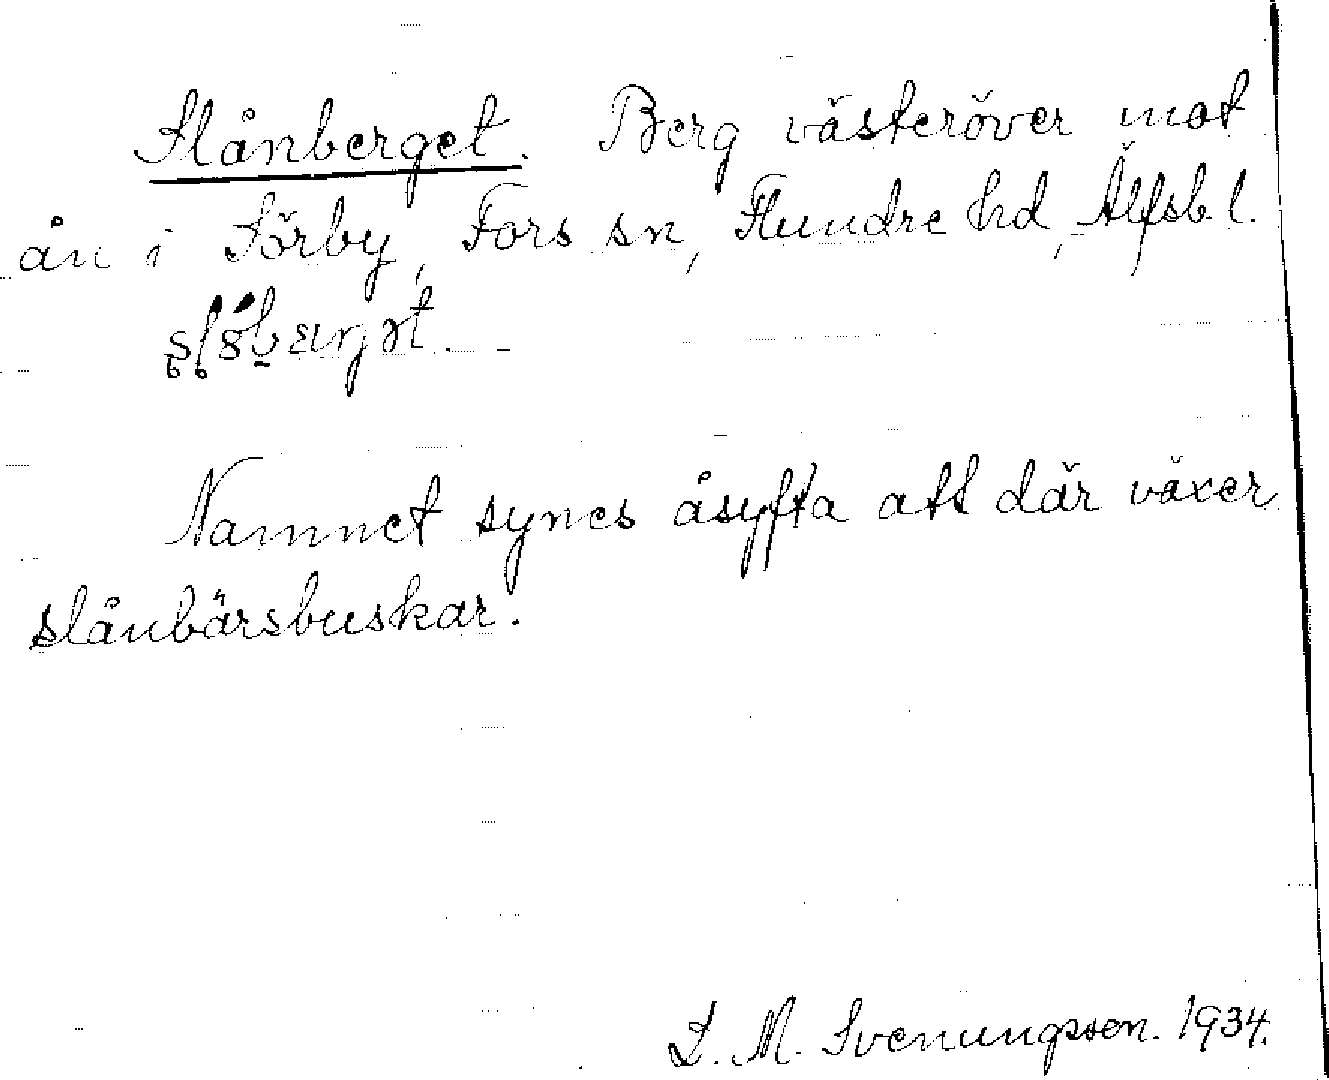 Slånberget. Berg västeröver mot
ån i Sörby, Fors sn, Flundre hd, Älfsb. l.
Namnet synes åsyfta att där växer
slånbärsbuskar.
S. M. Svenungsson. 1934.